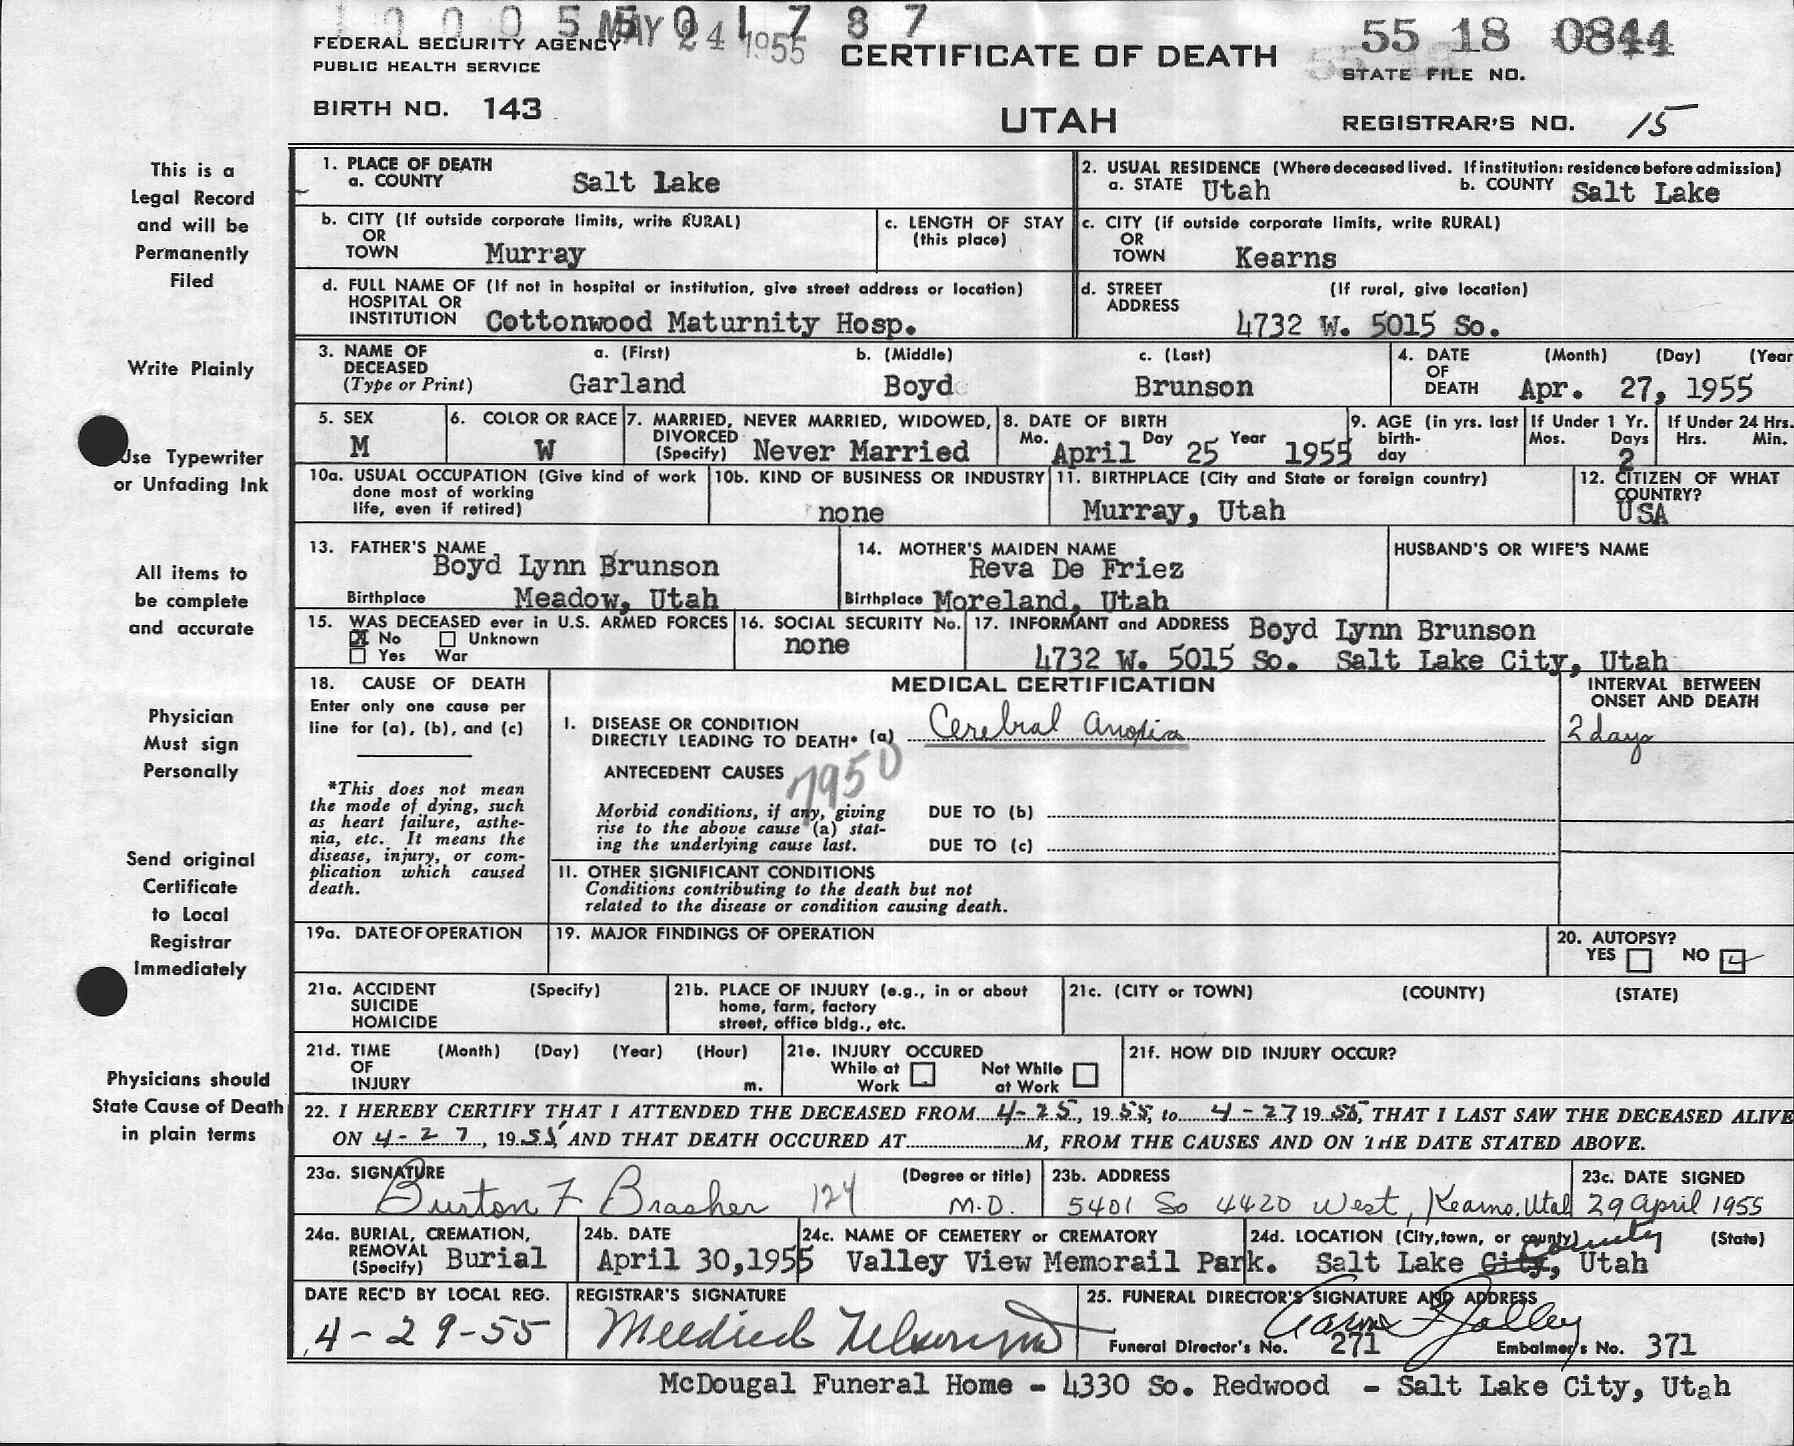 1 0 0 0 5 5 0 1 7 8 7
MAY 24 1955
55 18 0844
FEDERAL SECURITY AGENCY
PUBLIC HEALTH SERVICE
CERTIFICATE OF DEATH
STATE FILE NO.
BIRTH NO. 143
UTAH
REGISTRAR'S NO. 15
This is a
Legal Record
and will be
Permanently
Filed
Write Plainly
Use Typewriter
or Unfading Ink
All items to
be complete
and accurate
Physician
Must sign
Personally
Send original
Certificate
to Local
Registrar
Immediately
Physicians should
State Cause of Death
in plain terms
1. PLACE OF DEATH
a. COUNTY Salt Lake
2. USUAL RESIDENCE (Where deceased lived. If institution: residence before admission)
a. STATE Utah b. COUNTY Salt Lake
b. CITY (If outside corporate limits, write RURAL)
OR
TOWN Murray
c. LENGTH OF STAY
(this place)
c. CITY (if outside corporate limits, write RURAL)
OR
TOWN Kearns
d. FULL NAME OF (If not in hospital or institution, give street address or location)
HOSPITAL OR
INSTITUTION Cottonwood Maturnity Hosp.
d. STREET (If rural, give location)
ADDRESS
4732 W. 5015 So.
3. NAME OF a. (First) b. (Middle) c. (Last)
DECEASED
(Type or Print) Garland Boyd Brunson
4. DATE (Month) (Day) (Year
OF
DEATH Apr. 27, 1955
5. SEX
M
6. COLOR OR RACE
W
7. MARRIED, NEVER MARRIED, WIDOWED,
DIVORCED
(Specify) Never Married
8. DATE OF BIRTH
Mo. Day Year
April 25 1955
9. AGE (in yrs. last
birth-
day
If Under 1 Yr.
Mos. Days
2
If Under 24 Hrs.
Hrs. Min.
10a. USUAL OCCUPATION (Give kind of work
done most of working
life, even if retired)
10b. KIND OF BUSINESS OR INDUSTRY
none
11. BIRTHPLACE (City and State or foreign country)
Murray, Utah
12. CITIZEN OF WHAT
COUNTRY?
USA
13. FATHER'S NAME
Boyd Lynn Brunson
Birthplace Meadow, Utah
14. MOTHER'S MAIDEN NAME
Reva De Friez
Birthplace Moreland, Utah
HUSBAND'S OR WIFE'S NAME
15. WAS DECEASED ever in U.S. ARMED FORCES
X No Unknown
Yes War
16. SOCIAL SECURITY No.
none
17. INFORMANT and ADDRESS Boyd Lynn Brunson
4732 W. 5015 So. Salt Lake City, Utah
18. CAUSE OF DEATH
Enter only one cause per
line for (a), (b), and (c)
*This does not mean
the mode of dying, such
as heart failure, asthe-
nia, etc. It means the
disease, injury, or com-
plication which caused
death.
MEDICAL CERTIFICATION
INTERVAL BETWEEN
ONSET AND DEATH
I. DISEASE OR CONDITION
DIRECTLY LEADING TO DEATH* (a) Cerebral anoxia
2 days
ANTECEDENT CAUSES
7950
Morbid conditions, if any, giving
rise to the above cause (a) stat-
ing the underlying cause last.
DUE TO (b)
DUE TO (c)
II. OTHER SIGNIFICANT CONDITIONS
Conditions contributing to the death but not
related to the disease or condition causing death.
19a. DATE OF OPERATION
19. MAJOR FINDINGS OF OPERATION
20. AUTOPSY?
YES NO
21a. ACCIDENT (Specify)
SUICIDE
HOMICIDE
21b. PLACE OF INJURY (e.g., in or about
home, farm, factory
street, office bldg., etc.
21c. (CITY or TOWN) (COUNTY) (STATE)
21d. TIME (Month) (Day) (Year) (Hour)
OF
INJURY m.
21e. INJURY OCCURED
While at Not While
Work at Work
21f. HOW DID INJURY OCCUR?
22. I HEREBY CERTIFY THAT I ATTENDED THE DECEASED FROM 4-25, 1955, to 4-27, 1955, THAT I LAST SAW THE DECEASED ALIVE
ON 4-27, 1955, AND THAT DEATH OCCURED AT M, FROM THE CAUSES AND ON THE DATE STATED ABOVE.
23a. SIGNATURE (Degree or title)
Burton F Brasher 124 M.D.
23b. ADDRESS
5401 So 4420 West, Kearns. Utah
23c. DATE SIGNED
29 April 1955
24a. BURIAL, CREMATION,
REMOVAL
(Specify) Burial
24b. DATE
April 30,1955
24c. NAME OF CEMETERY or CREMATORY
Valley View Memorail Park.
24d. LOCATION (City, town, or county) (State)
County
Salt Lake City, Utah
DATE REC'D BY LOCAL REG.
4-29-55
REGISTRAR'S SIGNATURE
25. FUNERAL DIRECTOR'S SIGNATURE AND ADDRESS
Funeral Director's No. 271 Embalmer's No. 371
McDougal Funeral Home - 4330 So. Redwood - Salt Lake City, Utah